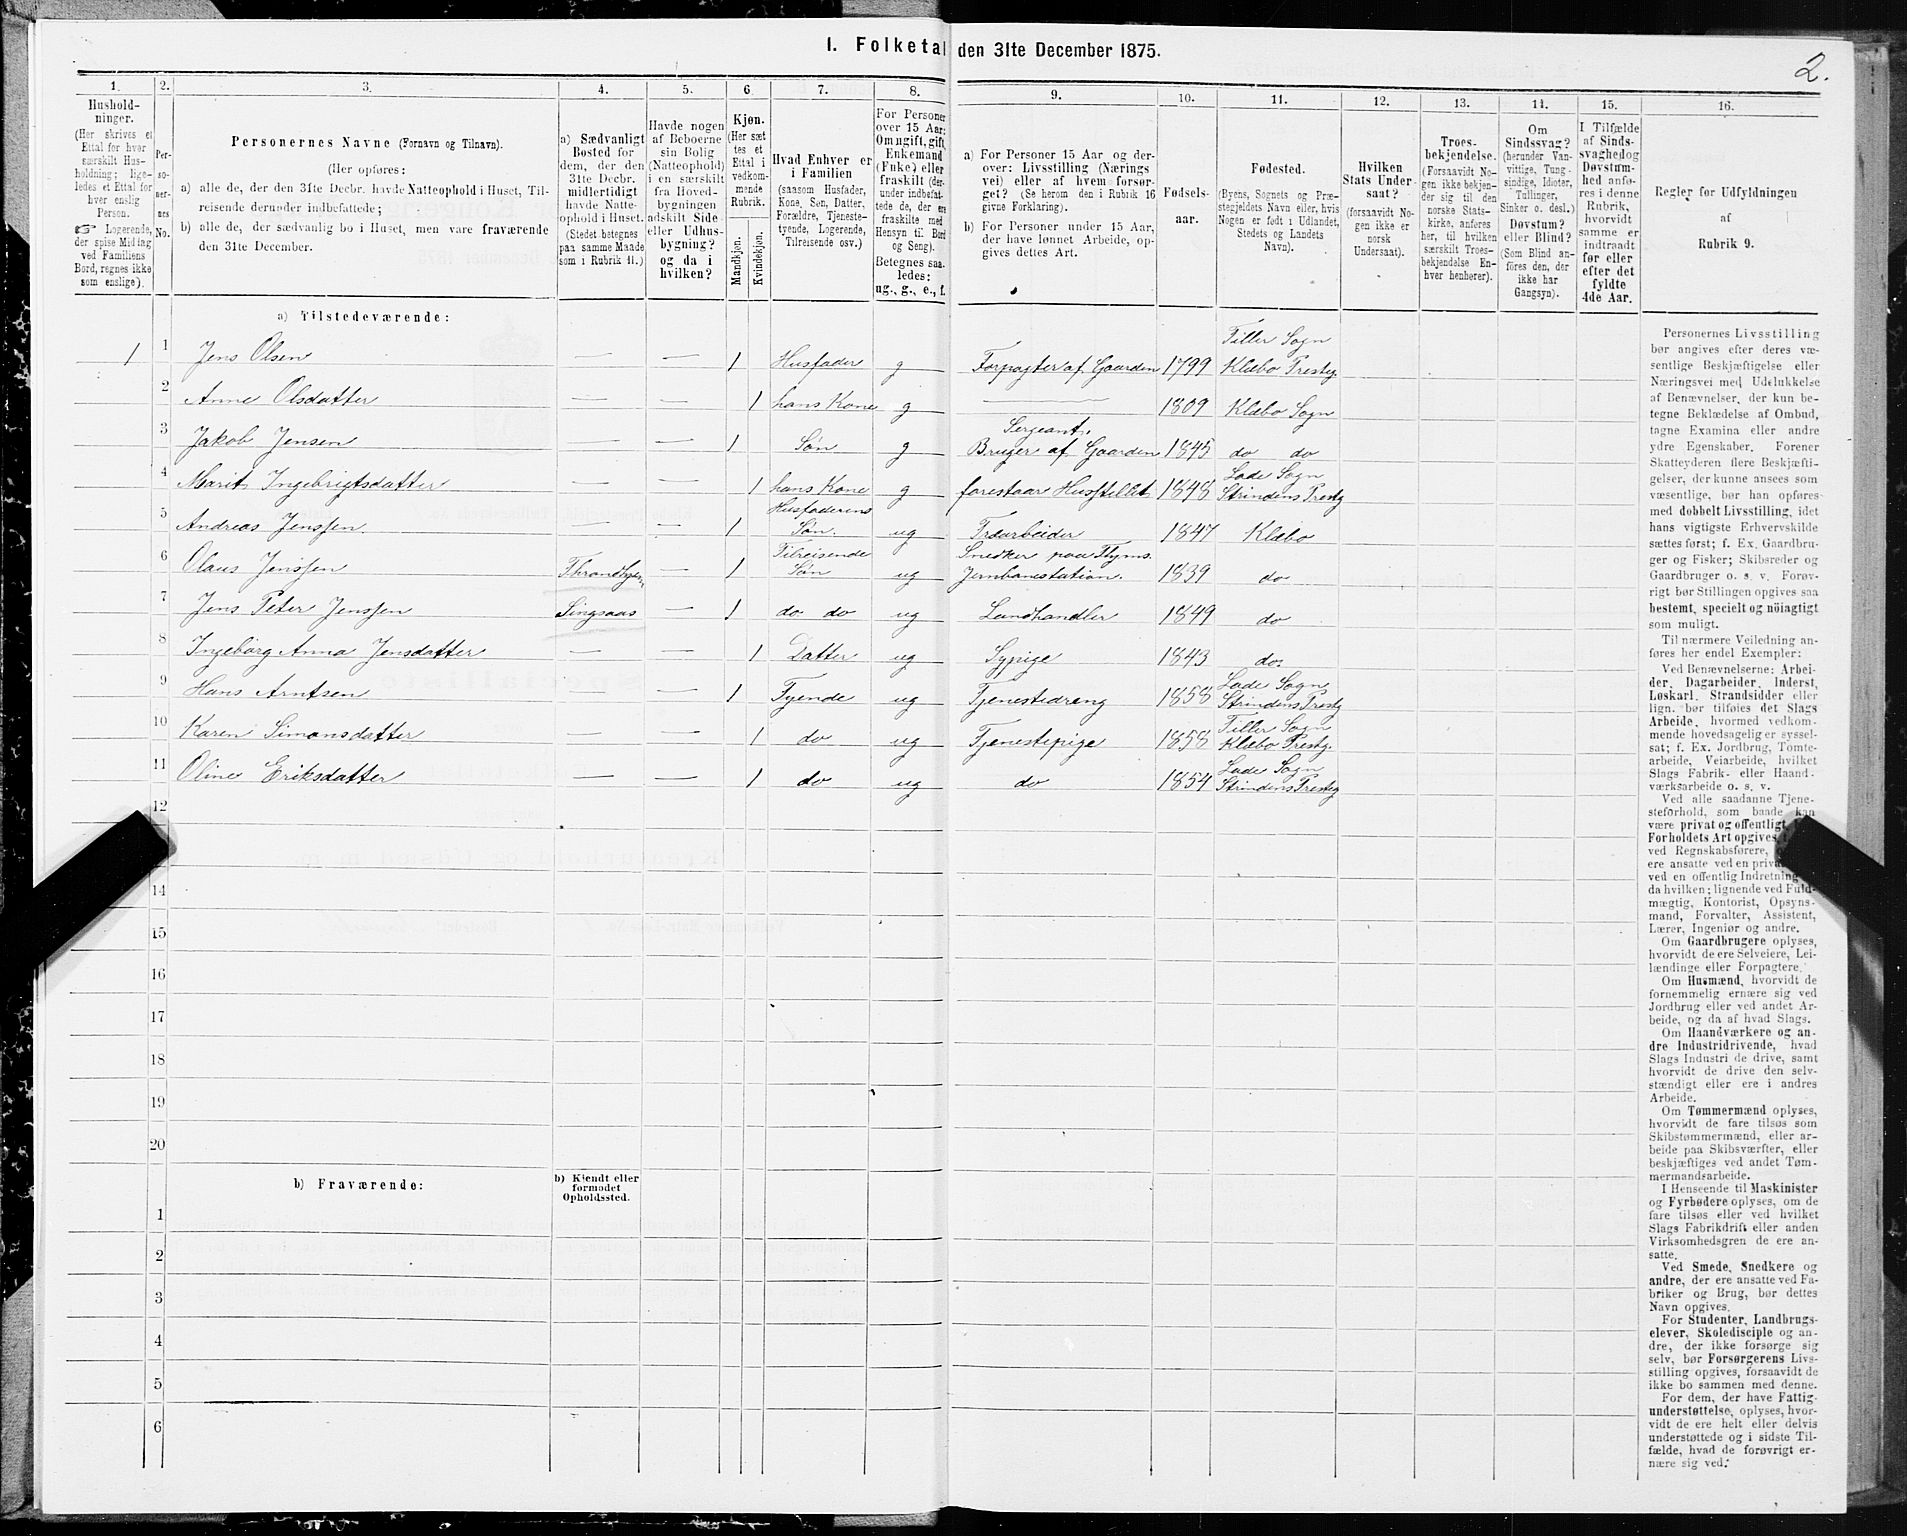 I. Folketal den 31te December 1875.
2.
1.
2.
3.
4.
5.
6.
7.
8.
9.
10.
11.
12.
13.
14.
15.
16.
Hushold-
ninger.
(Her skrives et
Ettal for hver
særskilt Hus-
holdning; lige-
ledes et Ettal for
hver enslig
Person.
☞ Logerende,
der spise Middag
ved Familiens
Bord, regnes ikke
som enslige).
Per-
so-
ner-
nes
No.
Personernes Navne (Fornavn og Tilnavn).
(Her opføres:
a) alle de, der den 31te Decbr. havde Natteophold i Huset, Til-
reisende derunder indbefattede;
b) alle de, der sædvanlig bo i Huset, men vare fraværende
den 31te December.
a) Sædvanligt
Bosted for
dem, der den
31te Decbr.
midlertidigt
havde Natte-
ophold i Huset.
(Stedet betegnes
paa samme Maade
som i Rubrik 11.)
Havde nogen
af Beboerne
sin Bolig
(Natteophold)
i en særskilt
fra Hoved-
bygningen
adskilt Side-
eller Udhus-
bygning?
og da i
hvilken?
Kjøn.
(Her sæt-
tes et
Ettal i
vedkom-
mende
Rubrik.
Mandkjøn.
Kvindekjøn.
Hvad Enhver er
i Familien
(saasom Husfader,
Kone, Søn, Datter,
Forældre, Tjeneste-
tyende, Logerende,
Tilreisende osv.)
For Personer
over 15 Aar:
Om ugift, gift,
Enkemand
(Enke) eller
fraskilt (der-
under indbefat-
tede de, der ere
fraskilte med
Hensyn til Bord
og Seng).
Betegnes saa-
ledes:
ug., g., e., f.
a) For Personer 15 Aar og der-
over: Livsstilling (Nærings-
vei) eller af hvem forsør-
get? (Se herom den i Rubrik 16
givne Forklaring).
b) For Personer under 15 Aar,
der have lønnet Arbeide, op-
gives dettes Art.
Fødsels-
aar.
Fødested.
(Byens, Sognets og Præ-
stegjeldets Navn eller, hvis
Nogen er født i Udlandet,
Stedets og Landets
Navn).
Hvilken
Stats Under-
saat?
(forsaavidt No-
gen ikke er
norsk
Undersaat).
Troes-
bekjendelse.
(Forsaavidt No-
gen ikke bekjen-
der sig til den
norske Stats-
kirke, anføres
her, til hvilken
særskilt Troes-
bekjendelse En-
hver henhører).
Om
Sindssvag?
(herunder Van-
vittige, Tung-
sindige, Idioter,
Tullinger,
Sinker o. desl.)
Døvstum?
eller Blind?
(Som Blind an-
føres den, der
ikke har
Gangsyn).
I Tilfælde
af Sinds-
svaghed og
Døvstum-
hed anfø-
res i denne
Rubrik,
hvorvidt
samme er
indtraadt
før eller
efter det
fyldte
4de Aar.
Regler for Udfyldningen
af
Rubrik 9.
a) Tilstedeværende:
1 1 Jens Olsen — — 1 Husfader g Forpagter af Gaarden 1799 Tiller Sogn Klæbo Prestg.
2 Anne Olsdatter — — 1 hans Kone g — 1809 Klæbo Sogn
3 Jakob Jensen — — 1 Søn g Sergeant. Bruger af Gaarden 1845 do do
4 Marit Ingebrigtsdatter — — 1 hans Kone g forestaar Husstellet 1848 Lade Sogn Strindens Prestg
5 Andreas Jenssen — — 1 Husfaderens Søn. ug Træarbeider 1847 Klæbo
6 Olaus Jenssen Throndhjem — 1 Tilreisende Søn ug Snedker paa Thjms. Jernbanestation. 1839 do
7 Jens Peter Jenssen Singsaas — 1 do do ug Landhandler 1849 do
8 Ingeborg Anna Jensdatter — — 1 Datter ug Sypige 1843 do.
9 Hans Arntsen — — 1 Tyende ug Tjenestedreng 1858 Lade Sogn Strindens Prestg
10 Karen Simonsdatter — — 1 do ug Tjenestepige 1858 Tiller Sogn Klæbo Prestg.
11 Oline Eriksdatter — — 1 do ug do 1854 Lade Sogn Strindens Prestg
12
14
15
16
17
18
19
20
b) Fraværende:
b) Kjendt eller
formodet
Opholdssted.
1
2
3
4
5
6
Personernes Livsstilling
bør angives efter deres væ-
sentlige Beskjæftigelse eller
Næringsvei med Udelukkelse
af Benævnelser, der kun be-
tegne Beklædelse af Ombud,
tagne Examina eller andre
ydre Egenskaber. Forener
Skatteyderen flere Beskjæfti-
gelser, der kunne ansees som
væsentlige, bør han opføres
med dobbelt Livsstilling, idet
hans vigtigste Erhvervskilde
sættes først; f. Ex. Gaardbru-
ger og Fisker; Skibsreder og
Gaardbruger o. s. v. Forøv-
rigt bør Stillingen opgives saa
bestemt, specielt og nöiagtigt
som muligt.
Til nærmere Veiledning an-
føres her endel Exempler:
Ved Benævnelserne: Arbei-
der, Dagarbeider, Inderst,
Løskarl, Strandsidder eller
lign. bør tilføies det Slags
Arbeide, hvormed vedkom-
mende hovedsagelig er syssel-
sat; f. Ex. Jordbrug, Tomte-
arbeide, Veiarbeide, hvilket
Slags Fabrik- eller Haand-
værksarbeide o. s. v.
Ved alle saadanne Tjene-
steforhold, som baade kan
være privat og offentligt,
Forholdets Art opgives,
ved Regnskabsførere,
ere ansatte ved en priva
ved en offentlig Indretning
da hvilken; lignende ved Fuld-
mægtig, Kontorist, Opsyns-
mand, Forvalter, Assistent,
Lærer, Ingeniør og andre.
Om Gaardbrugere oplyses,
hvorvidt de ere Selveiere, Lei-
lændinge eller Forpagtere.
Om Husmænd, hvorvidt de
fornemmelig ernære sig ved
Jordbrug eller ved andet Ar-
beide, og da af hvad Slags.
Om Haandværkere og an-
dre Industridrivende, hvad
Slags Industri de drive, samt
hvorvidt de drive den selv-
stændigt eller ere i andres
Arbeide.
Om Tømmermænd oplyses,
hvorvidt de fare tilsøs som
Skibstømmermænd, eller ar-
beide paa Skibsværfter, eller
beskjæftiges ved andet Tøm-
mermandsarbeide.
I Henseende til Maskinister
og Fyrbødere oplyses, om de
fare tilsøs eller ved hvilket
Slags Fabrikdrift eller anden
Virksomhedsgren de ere an-
satte.
Ved Smede, Snedkere og
andre, der ere ansatte ved Fa-
briker og Brug, bør dettes
Navn opgives.
For Studenter, Landbrugs-
elever, Skoledisciple og an-
dre, der ikke forsørge sig
selv, bør Forsørgerens Livs-
stilling opgives, forsaavidt de
ikke bo sammen med denne.
For dem, der have Fattig-
understøttelse, oplyses, hvor-
vidt de ere helt eller delvis
understøttede og i sidste Til-
fælde, hvad de forøvrigt er-
nære sig ved.